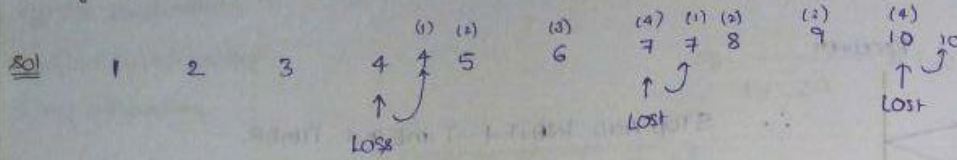 (1) (2) (3) (4) (1) (2) (3) (4)
Sol 1 2 3 4 4 5 6 7 7 8 9 10 10
Loss Lost Lost